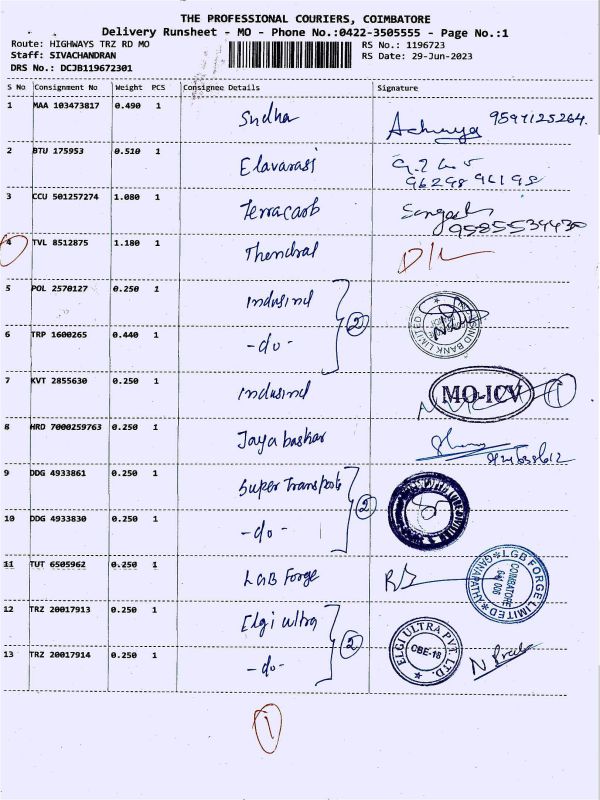 THE PROFESSIONAL COURIERS, COIMBATORE
Delivery Runsheet - MO - Phone No.:0422-3505555 - Page No.:1
Route: HIGHWAYS TRZ RD MO RS No.: 1196723
Staff: SIVACHANDRAN RS Date: 29-Jun-2023
DRS No.: DCJB119672301
S No Consignment No Weight PCS Consignee Details Signature
1 MAA 103473817 0.490 1 Sudha
2 BTU 175953 0.510 1 Elavarasi 9629896198
3 CCU 501257274 1.080 1 Terracarb 9585534430
4 TVL 8512875 1.180 1 Thendral D/L
5 POL 2570127 0.250 1 Indusind
2
6 TRP 1600265 0.440 1 -do- BANK LIMITED
7 KVT 2855630 0.250 1 Indusind MO-ICV 1
8 HRD 7000259763 0.250 1 Jayabaskar
9 DDG 4933861 0.250 1 Super Transports
2
10 DDG 4933830 0.250 1 -do-
11 TUT 6505962 0.250 1 LGB Forge LGB FORGE LIMITED COIMBATORE 641 006 GANAPATHY
12 TRZ 20017913 0.250 1 Elgi ultra
2 ELGI ULTRA PVT. LTD. CBE-18
13 TRZ 20017914 0.250 1 -do-
1